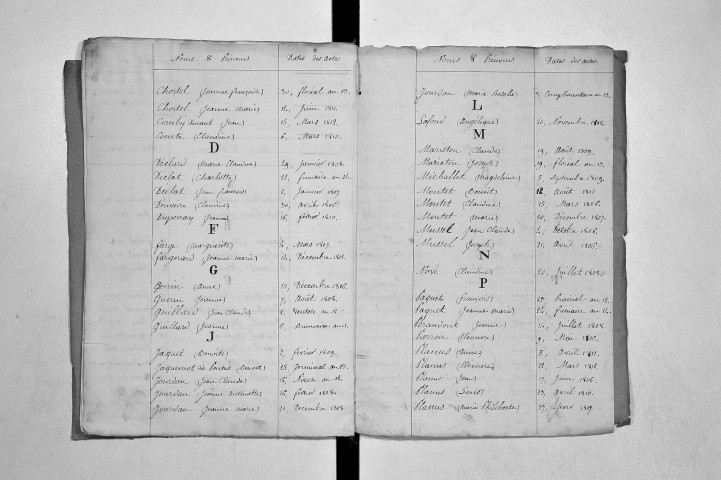 Noms & Prénoms Dates des actes
Chortel (Jeanne françoise) 30, floréal an 13.
Chortel (Jeanne marie) 14, Juin 1811.
(Jean) 15, Mars 1812.
Comte (Claudine) 6, Mars 1810.
D
Déclard (Marie Claudine) 29, Janvier 1808.
Déclat (Charlotte) 12, frimaire an 14.
Déclat (Jean françois) 2, Janvier 1807.
(Claudine) 30, avril 1806.
Dupenay (Jeanne) 16, février 1810.
F
farge (marguerite) 4, Mars 1807.
fargeray (Jeanne marie) 14, Décembre 1808.
G
(Anne) 10, Décembre 1806.
Guerin (Jeanne) 7, Août 1808.
Guillard (Jean Claude) 8, Ventose an 12.
Guillard (Jeanne) 8, Brumaire an 11.
J
Jaquet (Benoite) 2, février 1809.
Jaquemot (Benoit) 25, Germinal an 12.
Jourdan (Jean Claude) 15, Nivose an 12.
Jourdan (Jeanne antoinette) 16, février 1812.
Jourdan (Jeanne marie) 21, Décembre 1808.
Noms & Prénoms Dates des actes
Jourdan (Marie Rosalie) 3, Complémentaire an 12.
L
Lafond (Angélique) 20, Novembre 1812.
M
Mariston (Claude) 19, Août 1809.
Mariston (Joseph) 19, floréal an 13.
Michallet (Magdeleine) 5, Septembre 1809.
Montet (Benoit) 12, Août 1810.
Montet (Claudine) 15, Mars 1806.
Montet (Marie) 10, Décembre 1807.
Mussel (Jean Claude) 4, Octobre 1806.
Mussel (Joseph) 21, Avril 1806.
N
Nové (Claudine) 20, Juillet 1806.
P
Paquet (françois) 23, Prairial an 12.
Paquet (Jeanne marie) 14, frimaire an 14.
(Jeanne) 14, Juillet 1808.
Perron (Eléonore) 9, Mai 1810.
Planus (Anne) 5, Avril 1811.
Planus (Eléonore) 22, Mars 1812.
Planus (Jean) 17, Juin 1806.
Planus (Louis) 23, avril 1810.
Planus (Marie Philiberte) 27, 1807.